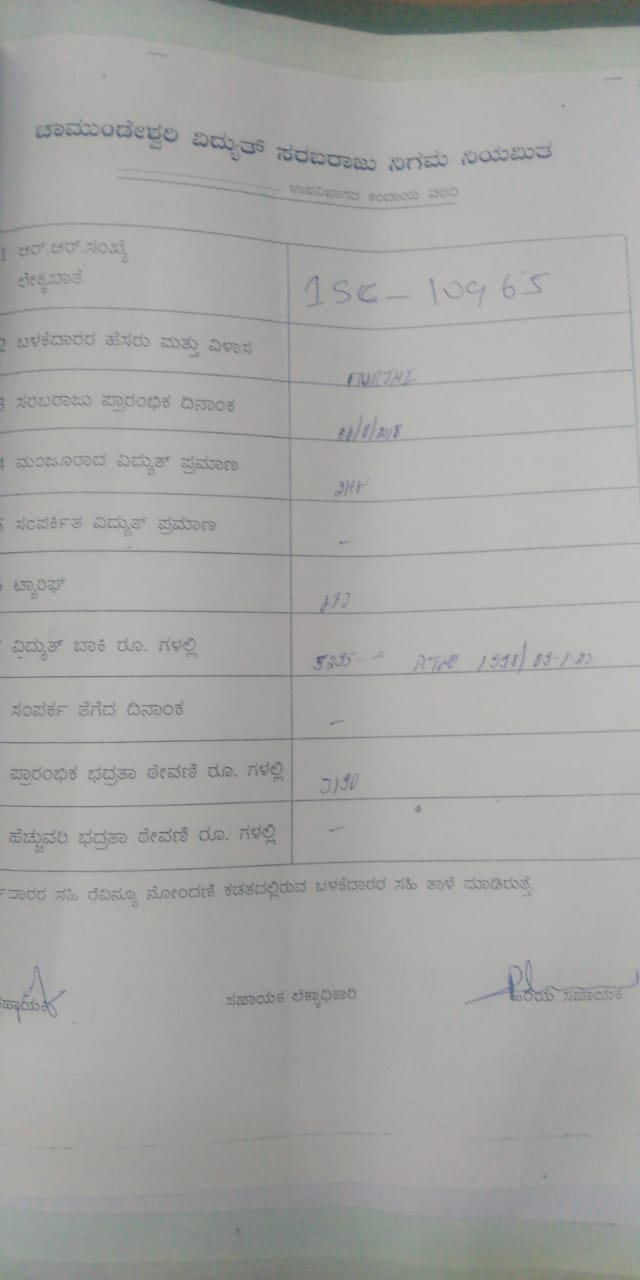 ಚಾಮುಂಡೇಶ್ವರಿ ವಿದ್ಯುತ್ ಸರಬರಾಜು ನಿಗಮ ನಿಯಮಿತ
ಉಪವಿಭಾಗದ ಕಂದಾಯ ವರದಿ
1 ಆರ್.ಆರ್.ಸಂಖ್ಯೆ
ಲೇಕ್ಖಖಾತೆ
10965
2 ಬಳಕೆದಾರರ ಹೆಸರು ಮತ್ತು ವಿಳಾಸ
3 ಸರಬರಾಜು ಪ್ರಾರಂಭಿಕ ದಿನಾಂಕ
4 ಮಂಜೂರಾದ ವಿದ್ಯುತ್ ಪ್ರಮಾಣ
ಸಂಪರ್ಕಿತ ವಿದ್ಯುತ್ ಪ್ರಮಾಣ
–
ಟ್ಯಾರಿಫ್
ವಿದ್ಯುತ್ ಬಾಕಿ ರೂ. ಗಳಲ್ಲಿ
ಸಂಪರ್ಕ ತೆಗೆದ ದಿನಾಂಕ
–
ಪ್ರಾರಂಭಿಕ ಭದ್ರತಾ ಠೇವಣಿ ರೂ. ಗಳಲ್ಲಿ
3190
ಹೆಚ್ಚುವರಿ ಭದ್ರತಾ ಠೇವಣಿ ರೂ. ಗಳಲ್ಲಿ
–
ಸಹಿ ರೆವಿನ್ಯೂ ನೋಂದಣಿ ಕಡತದಲ್ಲಿರುವ ಬಳಕೆದಾರರ ಸಹಿ ತಾಳೆ ಮಾಡಿರುತ್ತೆ.
ಸಹಾಯಕ ಲೆಕ್ಕಾಧಿಕಾರಿ ಹಿರಿಯ ಸಹಾಯಕ